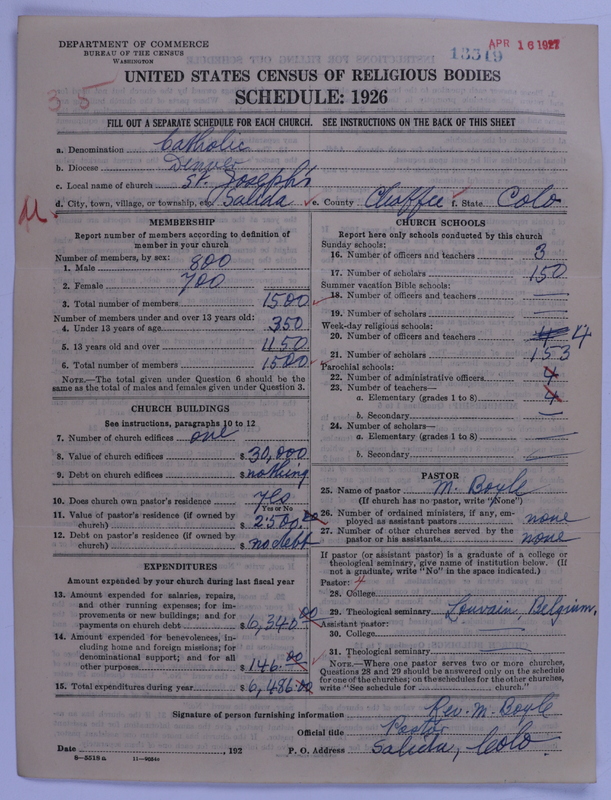 DEPARTMENT OF COMMERCE
BUREAU OF THE CENSUS
WASHINGTON
APR 16 1927
13319
35
UNITED STATES CENSUS OF RELIGIOUS BODIES
SCHEDULE: 1926
FILL OUT A SEPARATE SCHEDULE FOR EACH CHURCH. SEE INSTRUCTIONS ON THE BACK OF THIS SHEET
a. Denomination Catholic
b. Diocese Denver
c. Local name of church St. Joseph's
d. City, town, village, or township, etc. Salida e. County Chaffee f. State Colo
M
MEMBERSHIP
Report number of members according to definition of
member in your church
Number of members, by sex:
1. Male 800
2. Female 700
3. Total number of members 1500
Number of members under and over 13 years old:
4. Under 13 years of age 350
5. 13 years old and over 1150
6. Total number of members 1500
NOTE.—The total given under Question 6 should be the
same as the total of males and females given under Question 3.
CHURCH BUILDINGS
See instructions, paragraphs 10 to 12
7. Number of church edifices one
8. Value of church edifices $ 30,000
9. Debt on church edifices $ nothing
10. Does church own pastor's residence yes
Yes or No
11. Value of pastor's residence (if owned by
church) $ 2500.00
12. Debt on pastor's residence (if owned by
church) $ no debt
EXPENDITURES
Amount expended by your church during last fiscal year
13. Amount expended for salaries, repairs,
and other running expenses; for im-
provements or new buildings; and for
payments on church debt $ 6,340.00
14. Amount expended for benevolences, in-
cluding home and foreign missions; for
denominational support; and for all
other purposes $ 146.00
15. Total expenditures during year $ 6,486.00
CHURCH SCHOOLS
Report here only schools conducted by this church
Sunday schools:
16. Number of officers and teachers 3
17. Number of scholars 150
Summer vacation Bible schools:
18. Number of officers and teachers —
19. Number of scholars —
Week-day religious schools:
20. Number of officers and teachers 4
21. Number of scholars 153
Parochial schools:
22. Number of administrative officers 4
23. Number of teachers—
a. Elementary (grades 1 to 8) 4
b. Secondary —
24. Number of scholars—
a. Elementary (grades 1 to 8) —
b. Secondary —
PASTOR
25. Name of pastor M. Boyle
(If church has no pastor, write "None")
26. Number of ordained ministers, if any, em-
ployed as assistant pastors none
27. Number of other churches served by the
pastor or his assistants none
If pastor (or assistant pastor) is a graduate of a college or
theological seminary, give name of institution below. (If
not a graduate, write "No" in the space indicated.)
Pastor: 4
28. College
29. Theological seminary Louvain, Belgium.
Assistant pastor:
30. College —
31. Theological seminary —
NOTE.—Where one pastor serves two or more churches,
Questions 28 and 29 should be answered only on the schedule
for one of the churches; on the schedules for the other churches,
write "See schedule for church."
Signature of person furnishing information Rev. M. Boyle
Official title Pastor
Date , 192 P. O. Address Salida, Colo.
8—5518a 11—9054a